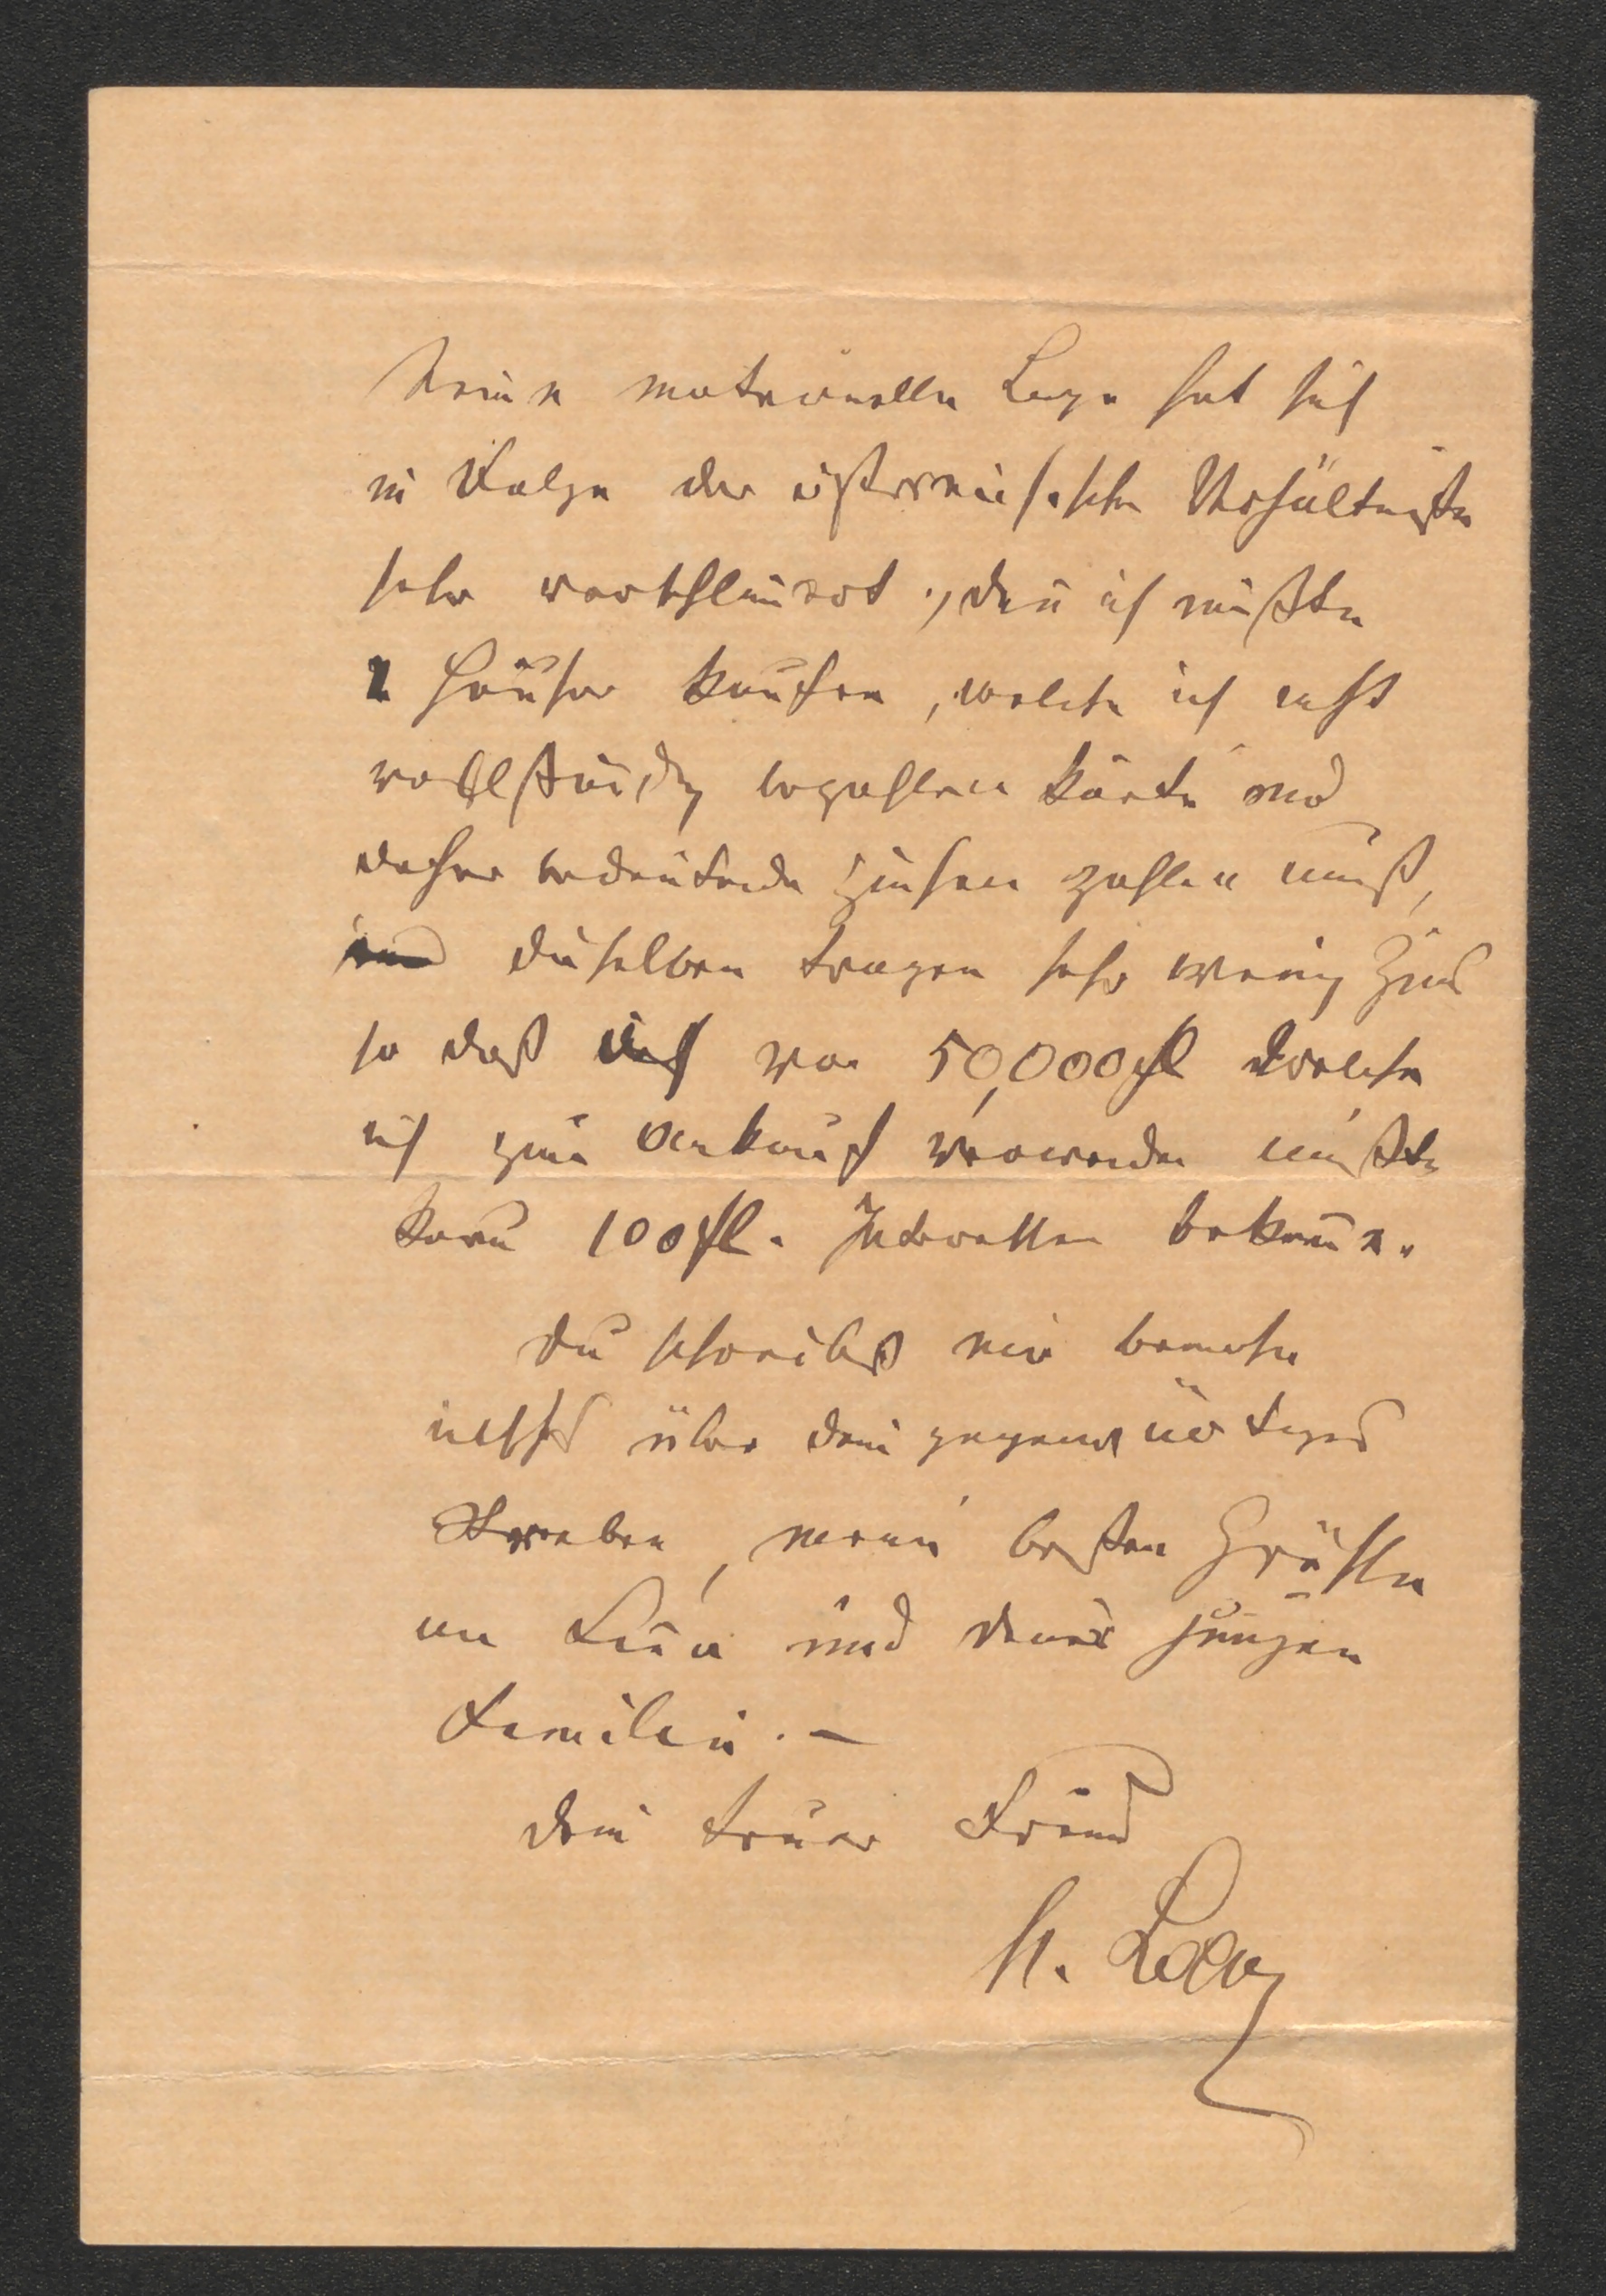 Meine materielle Lage hat sich
in Folge der österreichischen Verhältniße
sehr verschlimert, den ich mußte
2 Häuser kaufen, welche ich nicht
vollständig bezahlen konte und
daher bedeutende Zinsen zahlen muß,
und dieselben tragen sehr wenig Zins
so daß ich von 50,000 fl welche
ich zum Ankauf verwenden mußte
kaum 100 fl. Interessen bekome.
Du schreibst mir beinahe
nichts über dein gegenwärtiges
Streben, meine besten Grüße
an Lina und deine jungen
Familien. —
Dein treuer Freund
H. Löwy